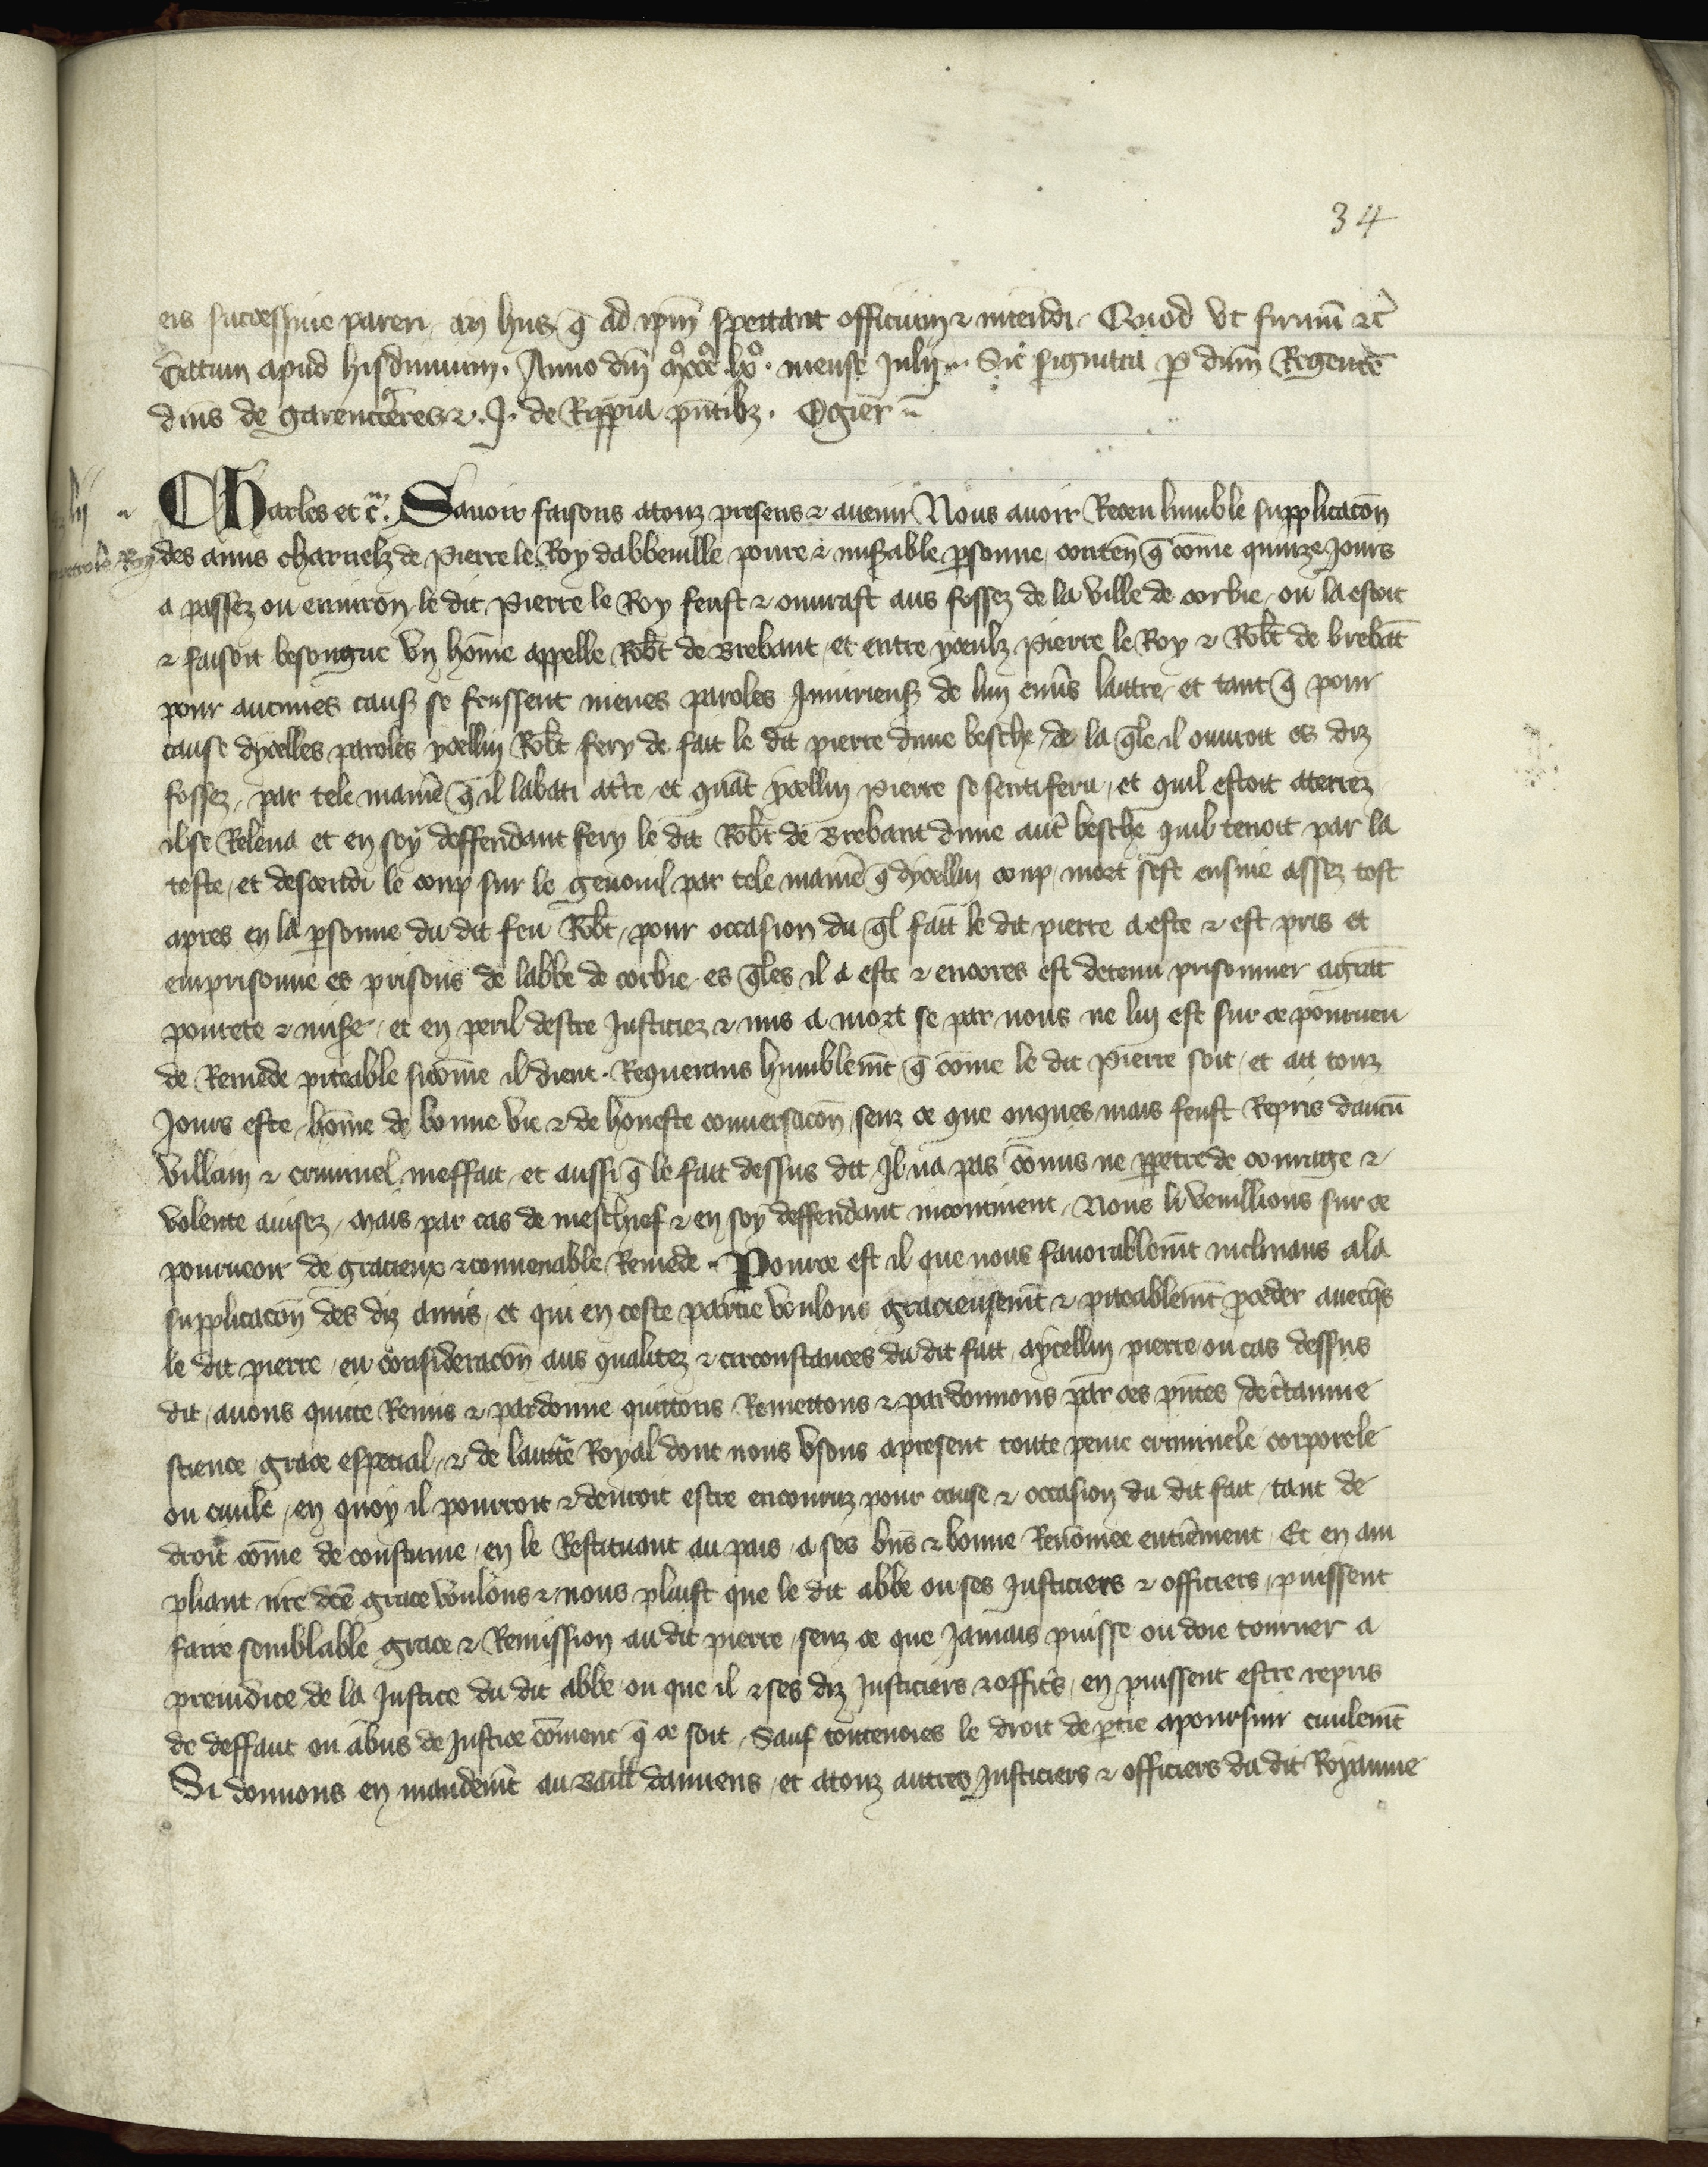 34
eis successive pareri, in hiis q̄ ad ip̄m spectant officium ⁊ intendi. Quod ut firmū ⁊c̄
Datum apud hisdinium. Anno dn̄i mͦcccͦ lxͦ. mense Julii. Sic signata p̱ dn̄m Regentē
dn̄is de Garencieres ⁊ J. de Rippia pn̄tibz. Ogier
lii
Pierre le Roy
Charles et c̄. Savoir faisons a touz presens ⁊ avenir Nous avoir Receu lumble supplicacōn
des amis charnelz de Pierre le Roy dabbeville povre ⁊ mis̄able p̱sonne, contenᷠ q̄ cōme quinze Jours
a passez ou environ le dit Pierre le Roy feust ⁊ ouvrast aus fossez de la ville de corbie, ou la estoit
⁊ faisoit besongne un hōme appelle Rob̄t de Brebant, et entre yceulz Pierre le Roy ⁊ Rob̄t de brebāt
pour aucunes caus̄ se feussent meues paroles Injurieus̄ de lun env̄s lautre, et tant q̄ pour
cause dycelles paroles ycellui Rob̄t fery de fait le dit pierre dune besche, de la q̄le il ouvroit es diz
fossez, par tele manīe q̄ il labati at̄re, et quāt ycellui Pierre se senti feru, et quil estoit aterrez
il se Releva et en soy deffendant fery le dit Rob̄t de Brebant dune aut̄ besche quil tenoit par la
teste, et descendi le coup sur le genouil par tele manīe q̄ dycellui coup, mort sest ensuie assez tost
apres en la p̱sonne du dit feu Rob̄t, pour occasion du q̄l fait le dit pierre a este ⁊ est pris et
emprisonne es prisons de labbe de corbie, es q̄les il a este ⁊ encores est detenu prisonnier a grāt
povrete ⁊ mis̄e, et en peril destre Justiciez ⁊ mis a mort se par nous ne lui est sur ce pourveu
de Remede piteable sicōme il dient. Requerans humblemēt q̄ cōme le dit Pierre soit, et ait touz
Jours este hōme de bonne vie ⁊ de honeste conversacōn, senz ce que onques mais feust Repris daucū
villain ⁊ criminel meffait, et aussi q̄ le fait dessus dit Il na pas cōmis ne p̱petre de courage ⁊
volente avisez, mais par cas de meschief ⁊ en soy deffendant incontinent, Nous li veuillions sur ce
pourveoir de gracieux ⁊ convenable Remede. Pource est il que nous favorablemēt inclinans a la
supplicacōn des diz amis, et qui en ceste partie voulons gracieusemēt ⁊ piteablemēt p̱ceder avecq̄s
le dit pierre, eu consideracōn aus qualitez ⁊ circonstances du dit fait, a ycellui pierre ou cas dessus
dit, avons quicte Remis ⁊ pardonne quittons Remettons ⁊ pardonnons par ces pn̄tes de c̄taine
science, grace especial, ⁊ de lauctē Royal dont nous usons a present toute peine criminele corporele
ou civile, en quoy il pourroit ⁊ devroit estre encouruz pour cause ⁊ occasion du dit fait, tant de
droit cōme de coustume, en le Restituant au pais, a ses bn̄s ⁊ bonne Renōmee entierement, Et en am
pliant nr̄e dc̄e grace voulons ⁊ nous plaist que le dit abbe ou ses Justiciers ⁊ officiers, puissent
faire semblable grace ⁊ Remission au dit pierre, senz ce que Jamais puisse ou doie tourner a
prejudice de la Justice du dit abbe ou que il ⁊ ses diz Justiciers ⁊ offic̄s, en puissent estre repris
de deffaut ou abus de Justice cōment q̄ ce soit, Sauf toutevoies le droit de p̱tie a poursuir civilemēt
Si donnons en mandemēt au Baill damiens, et a touz autres Justiciers ⁊ officiers du dit Royaume